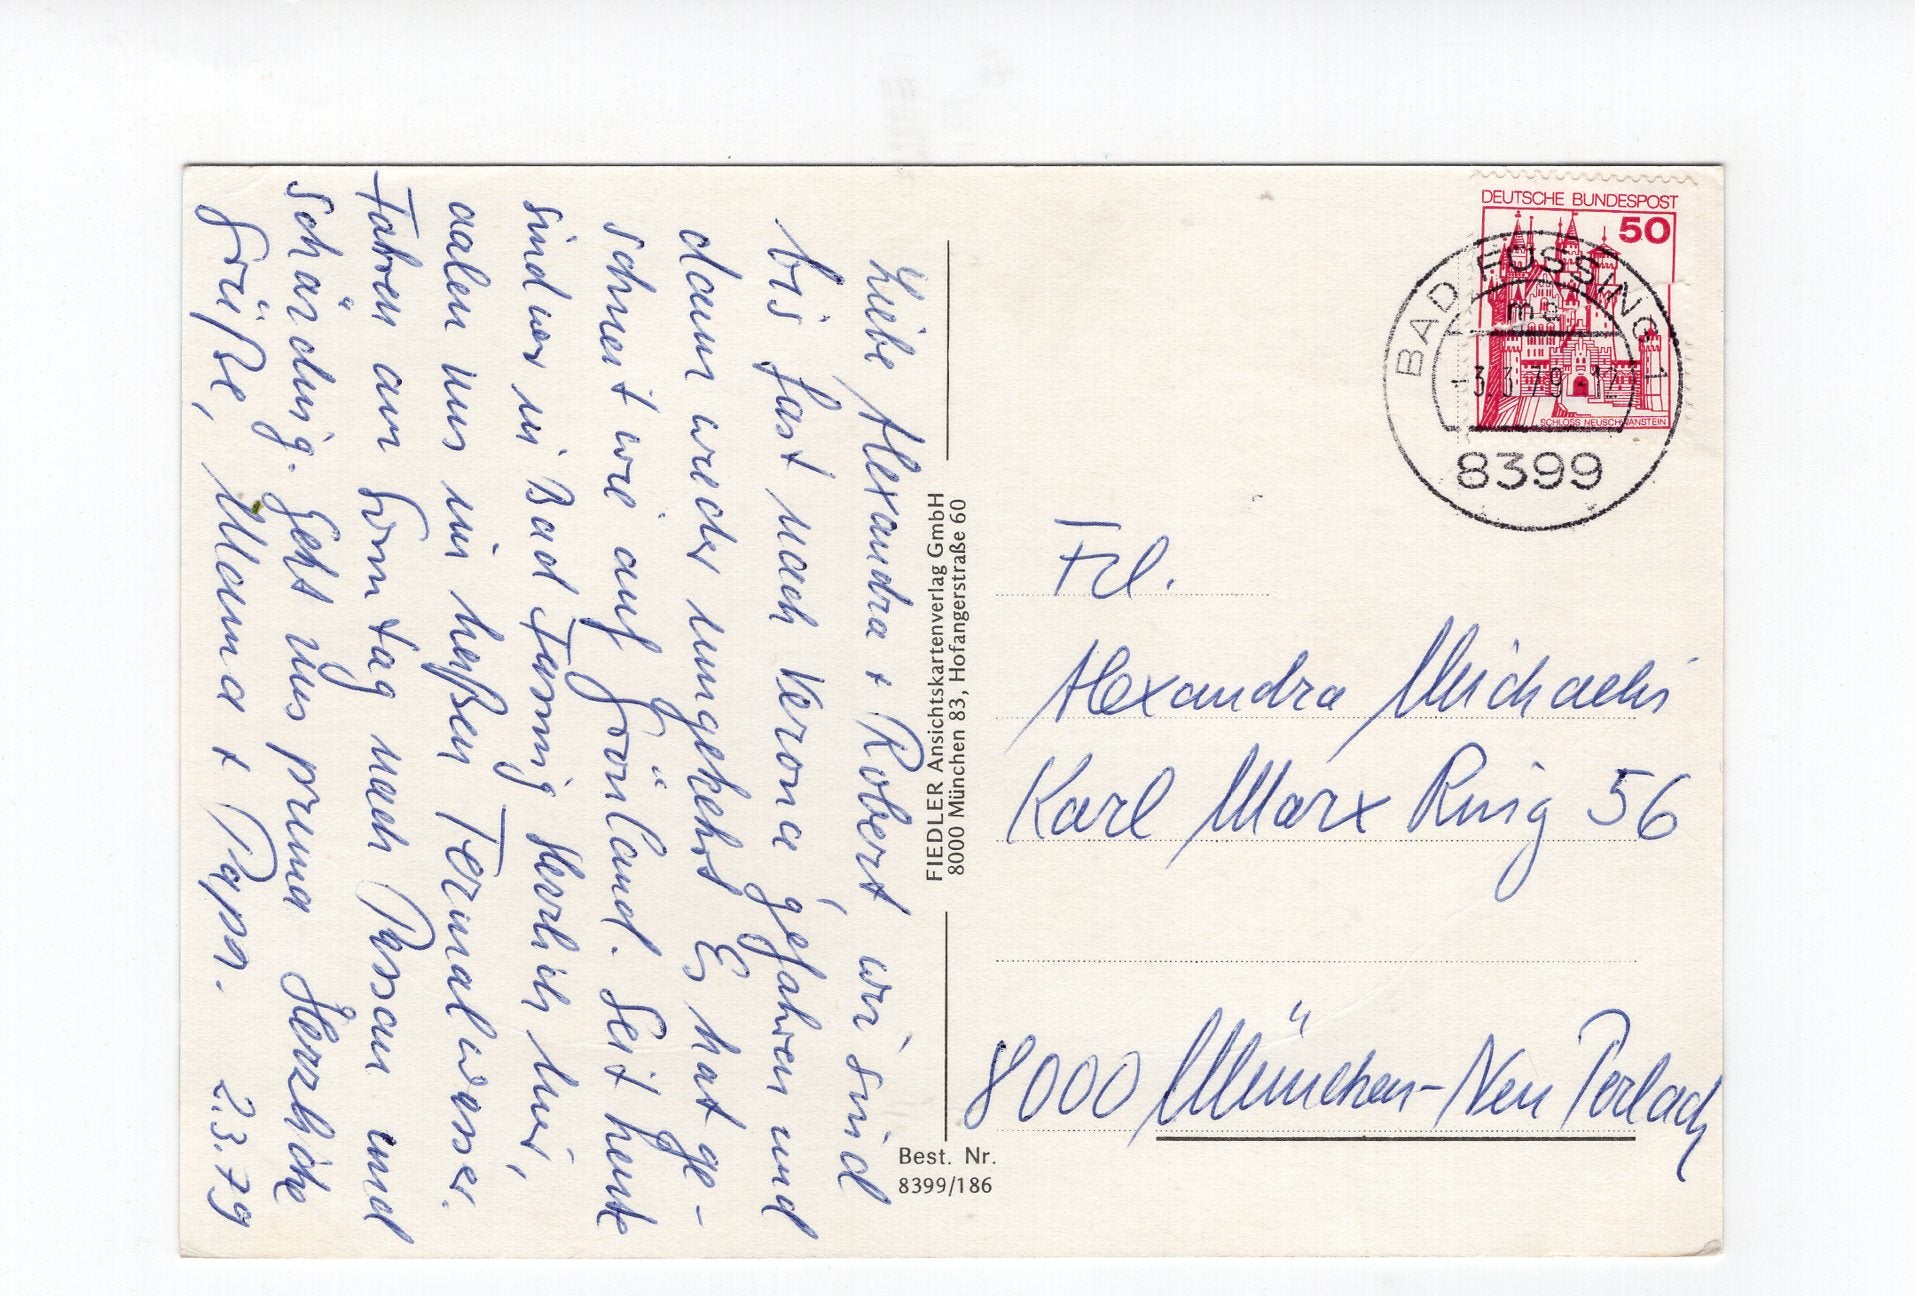 Liebe Alexandra + Robert, wir sind
bis fast nach Verona gefahren und
dann wieder umgekehrt Es hat ge-
schneit wie auf Grönland. Seit heute
sind wir in Bad Füssing Herrlich hier,
aalen uns im heißen Termalwasser.
Fahren am Sonntag nach Passau und
Schärding. Geht uns prima Herzliche
Grüße, Mama + Papa. 2.3.79
FIEDLER Ansichtskartenverlag GmbH
8000 München 83, Hofangerstraße 60
Best. Nr.
8399/186
DEUTSCHE BUNDESPOST
50
SCHLOSS NEUSCHWANSTEIN
BAD FÜSSING 1
-3.3.79-12
8399
Frl.
Alexandra Michaelis
Karl Marx Ring 56
8000 München-Neu Perlach